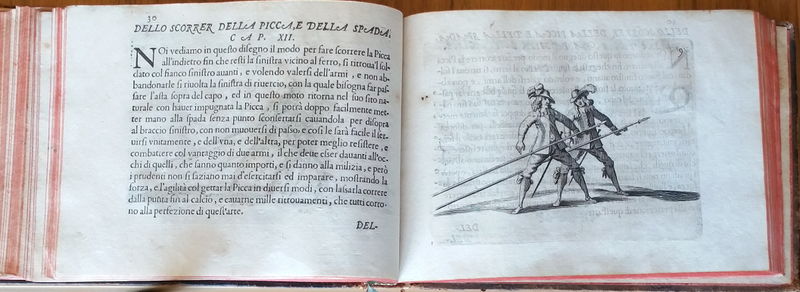 30
DELLO SCORRER DELLA PICCA, E DELLA SPADA,
CAP. XII.
NOi vediamo in questo disegno il modo per fare scorrere la Picca
all'indietro fin che resti la sinistra vicino al ferro, si ritroua'l sol-
dato col fianco sinistro auanti, e volendo valersi dell'armi, e non ab-
bandonarle si riuolta la sinistra di riuercio, con la quale bisogna far pas-
sare l'asta sopra del capo, ed in questo moto ritorna nel suo sito na-
turale con hauer impugnata la Picca, si potrà doppo facilmente met-
ter mano alla spada senza punto sconsertarsi cauandola per disopra
al braccio sinistro, con non muouersi di passo, e così le sarà facile il ser-
uirsi vnitamente, e dell'vna, e dell'altra, per poter meglio resistere, e
combattere col vantaggio di due armi, il che deue esser dauanti all'oc-
chi di quelli, che sanno quanto importi, e si danno alla milizia, e però
i prudenti non si saziano mai d'esercitarsi ed imparare, mostrando la
forza, e l'agilità col gettar la Picca in diuersi modi, con lassarla correre
dalla punta sin al calcio, e causare mille ritrouamenti, che tutti corro-
no alla perfezione di quest'arte.
DEL-